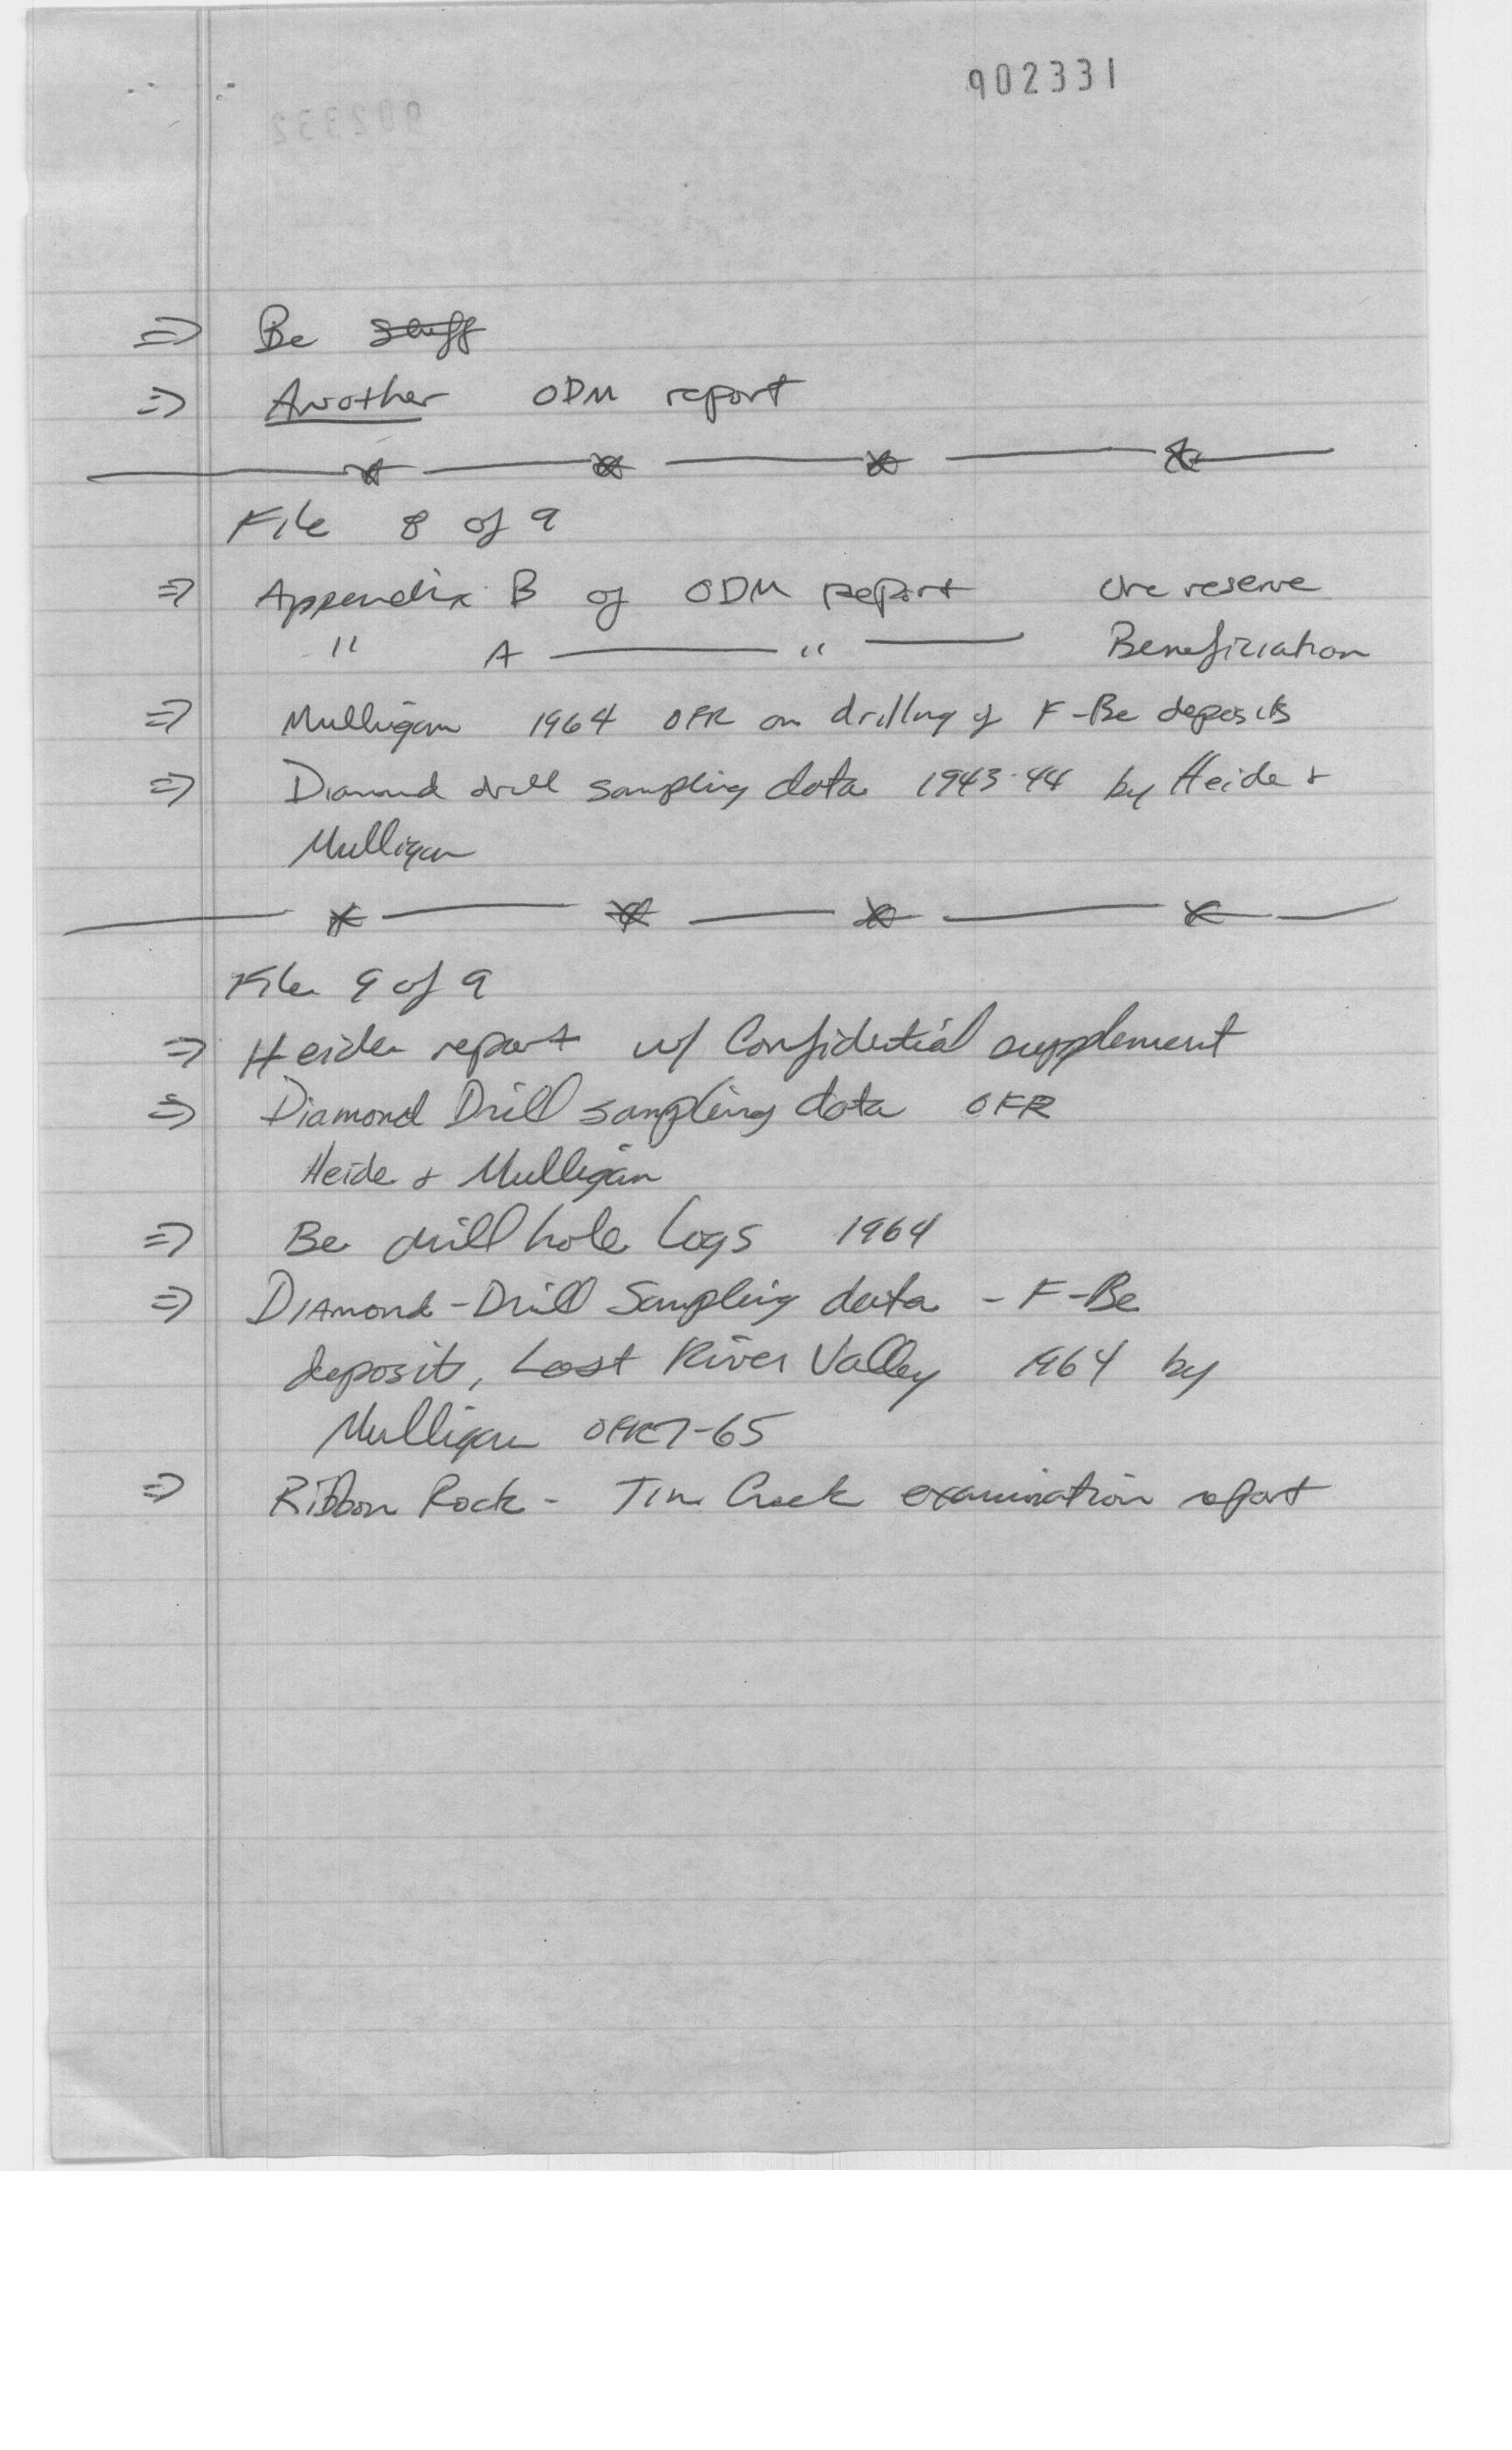 902331
902332
⇒ Be stuff
⇒ Another ODM report
File 8 of 9
⇒ Appendix B of ODM report Ore reserve
" A — " — Beneficiation
⇒ Mulligan 1964 OFR on drilling of F-Be deposits
⇒ Diamond drill sampling data 1943-44 by Heide &
Mulligan
File 9 of 9
⇒ Heide report w/ Confidential supplement
⇒ Diamond Drill sampling data OFR
Heide & Mulligan
⇒ Be drill hole Logs 1964
⇒ Diamond-Drill Sampling data - F-Be
deposits, Lost River Valley 1964 by
Mulligan OFR 7-65
⇒ Ribbon Rock - Tin Creek examination report